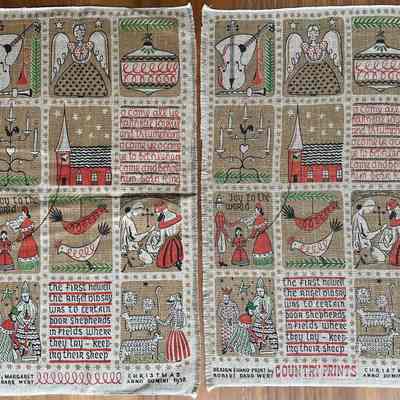 o come all ye
faithful joyful
and triumphant
o come ye o come
ye to Bethlehem
come and behold
him born King
Joy to the
world
the first nowell
the angel did say
was to certain
poor shepherds
in fields where
they lay - keep-
ing their sheep
MARGARET
BARD WERT
CHRISTMAS
ANNO DOMINI 1958
o come all ye
faithful joyful
and triumphant
o come ye o come
ye to Bethlehem
come and behold
him born King
Joy to the
world
the first nowell
the angel did say
was to certain
poor shepherds
in fields where
they lay - keep-
ing their sheep
DESIGN & HAND PRINT BY
ROBERT DARR WERT
COUNTRY PRINTS
CHRISTMAS
ANNO DOMINI